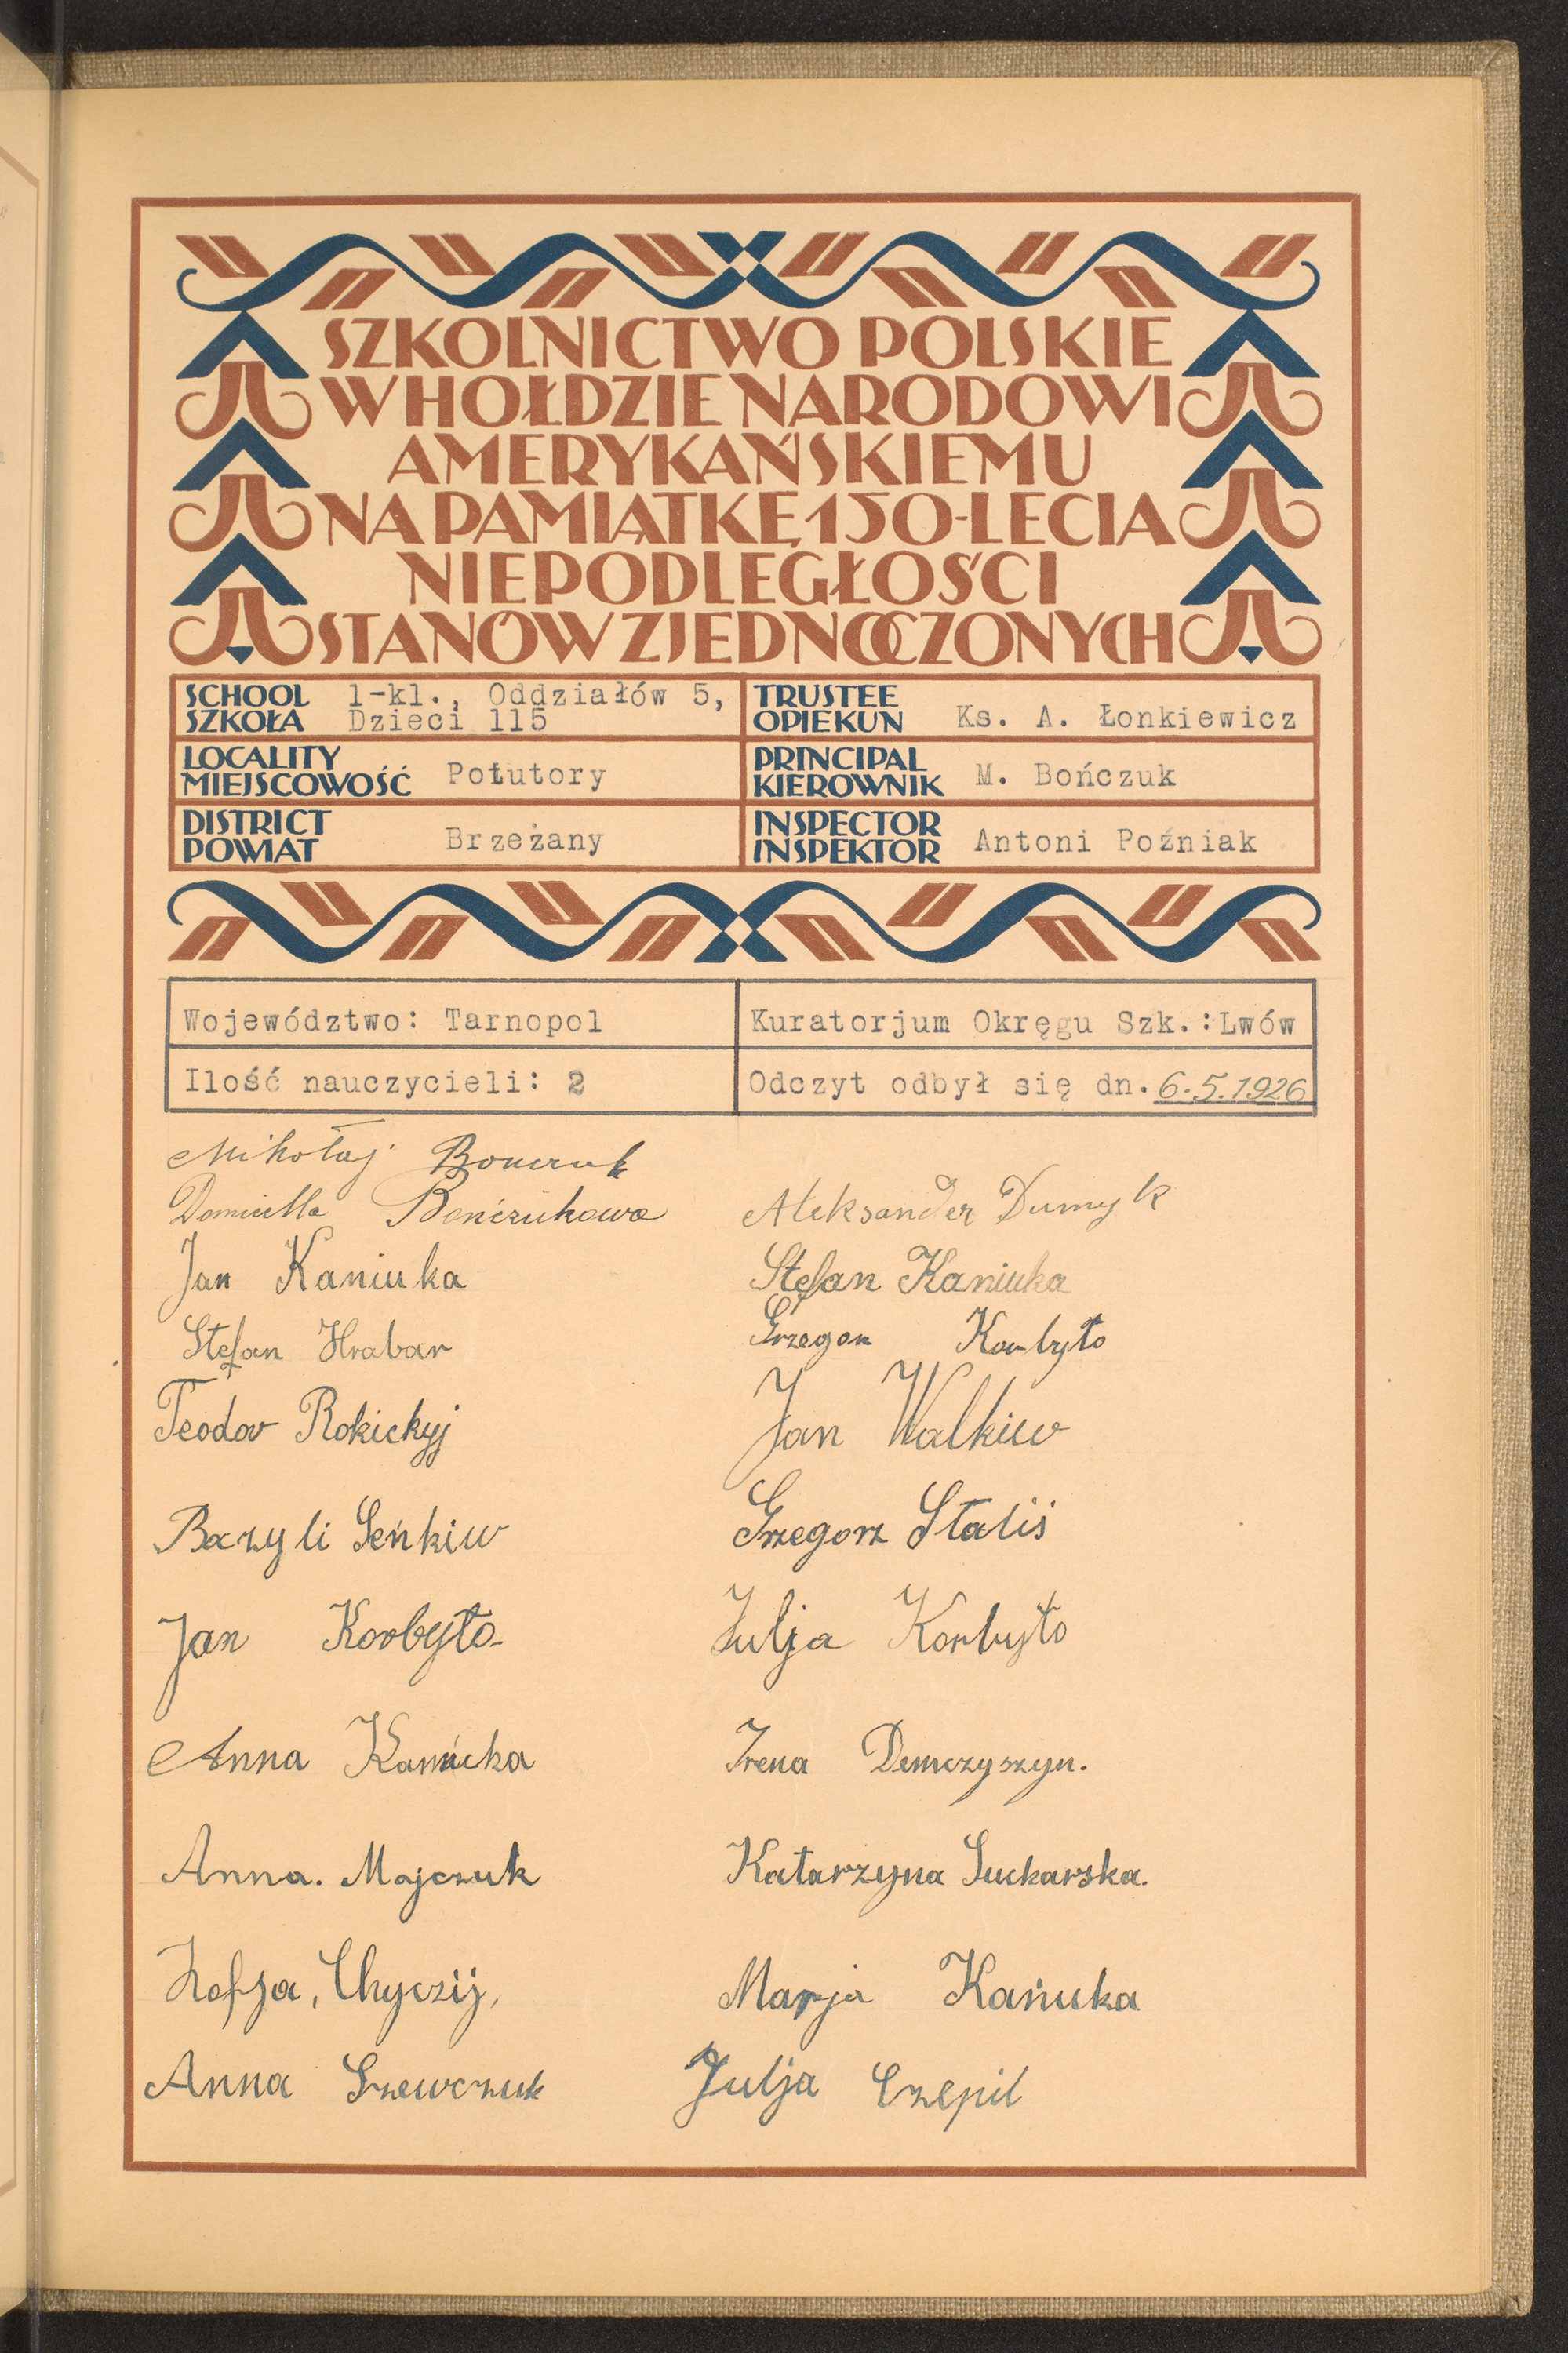 SZKOLNICTWO POLSKIE
W HOŁDZIE NARODOWI
AMERYKAŃSKIEMU
NA PAMIĄTKĘ 150-LECIA
NIEPODLEGŁOŚCI
STANÓW ZJEDNOCZONYCH
SCHOOL
SZKOŁA
1-kl., Oddziałów 5,
Dzieci 115
TRUSTEE
OPIEKUN
Ks. A. Łonkiewicz
LOCALITY
MIEJSCOWOŚĆ
Potutory
PRINCIPAL
KIEROWNIK
M. Bończuk
DISTRICT
POWIAT
Brzeżany
INSPECTOR
INSPEKTOR
Antoni Poźniak
Województwo: Tarnopol
Kuratorjum Okręgu Szk.: Lwów
Ilość nauczycieli: 2
Odczyt odbył się dn. 6.5.1926
Mikołaj Bonczuk
Domicella Bończukowa
Aleksander Dumyk
Jan Kaniuka
Stefan Kaniuka
Stefan Hrabar
Grzegorz Korbyło
Teodor Rokickyj
Jan Walkiw
Bazyli Seńkiw
Grzegorz Staliś
Jan Korbyło
Julja Korbyło
Anna
Irena Demczyszyn.
Anna. Majczuk
Katarzyna Suckarska.
Zofja, Chyczij,
Marja Kańuka
Anna Szewczuk
Julja Czepil